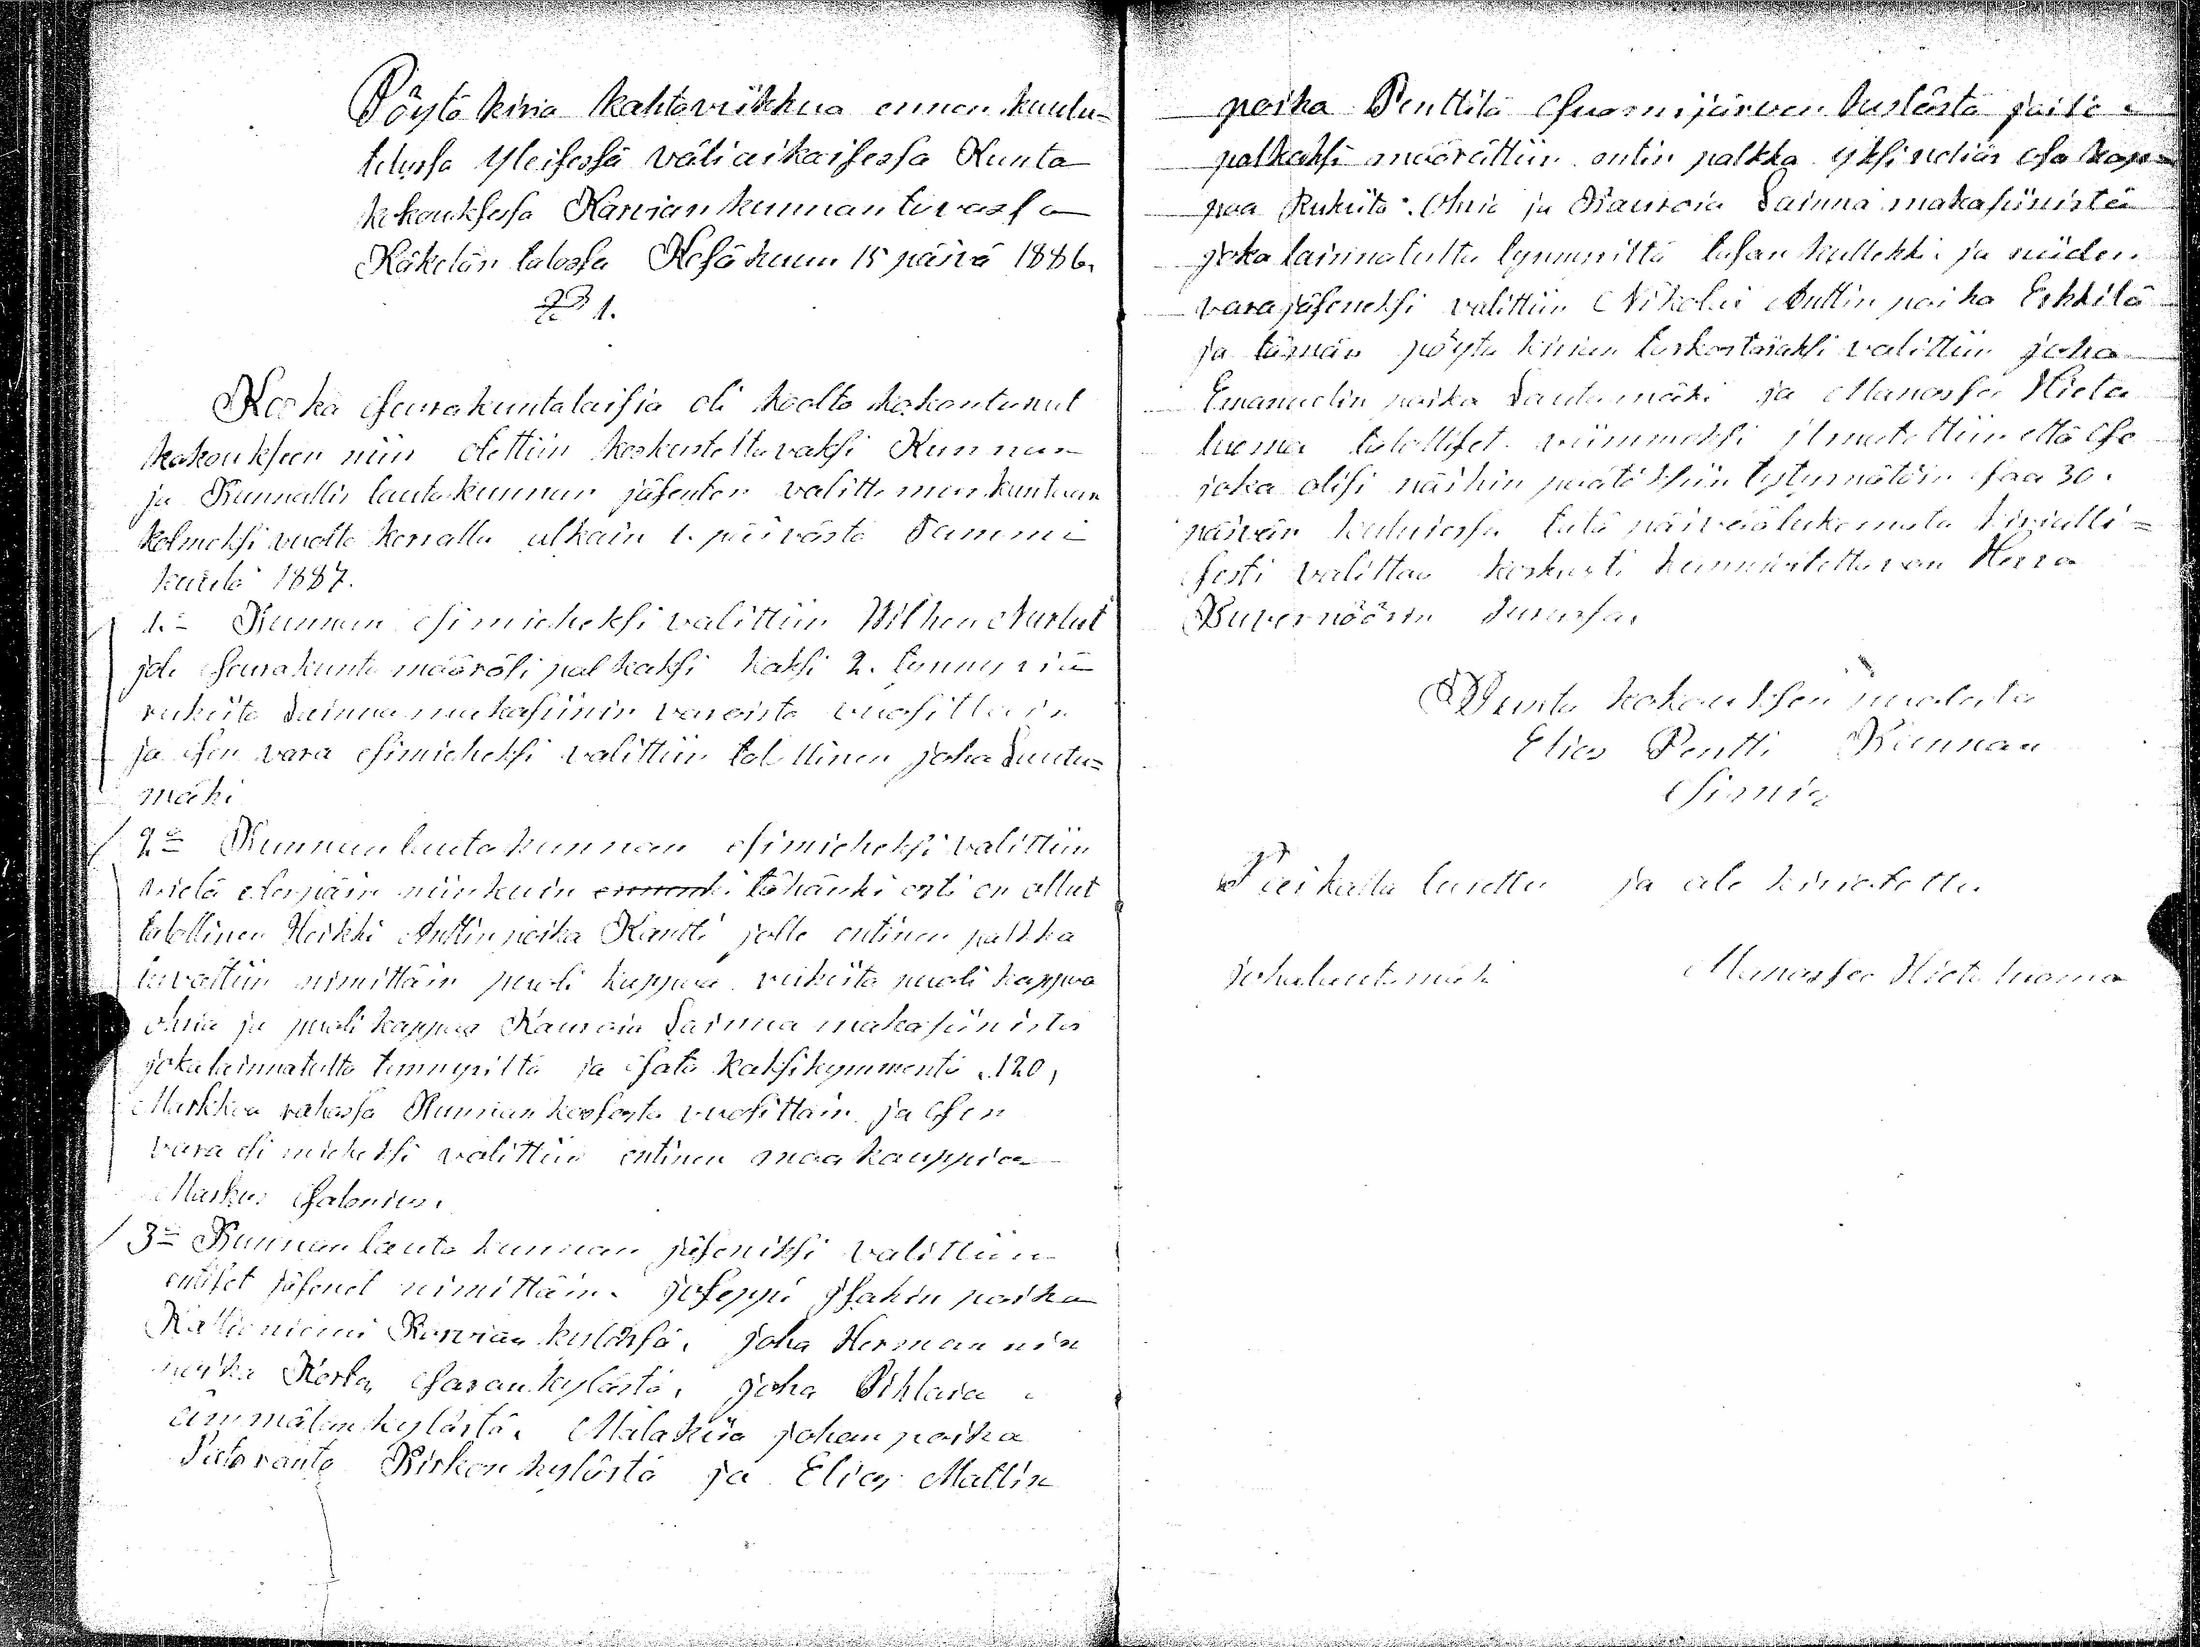 Pöytä kirja kahtaviikkua ennen kuulu=
telussa Yleisessä väliaikaisessa Kunta
kokouksessa Karvian kunnan tuvassa
Käkelän talossa Kesäkuun 15 päivä 1886.
§ 1.
Koska seurakuntalaisia oli koolta kokoontunut
kokoukseen niin otettiin keskusteltavaksi Kunnan
ja Kunnallis lautakunnan jäsenten valittemus kuntaan
kolmeksi vuotta kerralla alkain 1. päivästä Tammi
kuuta 1887.
1:= Kunnan esimieheksi valittiin Wilhen
jolle seurakunta määräsi palkaksi kaksi 2. tynnyriä
rukiita Lainna makasiinin varoista vuosittain
ja sen vara esimieheksi valittiin talollinen joha Lautu=
mäki
2:= Kunnan lauta kunnan esimieheksi valittiin
vielä edespäin niinkuin ennenki tähänki asti on ollut
talollinen Heikki Anttin poika Kantti jolle entinen palkka
luvattiin nimittäin puoli kappaa rukiita puoli kappaa
ohria ja puoli kappaa Kauroia Lainna makasiinista
joka lainnatulta tynnyriltä ja sata kaksikymmentä 120,
Markkaa rahassa Kunnan kassasta vuosittain ja sen
vara esi mieheksi valittiin entinen maa kauppias
Markus Salonius.
3:= Kunnan lauta kunnan jäseniksi valittiin
entiset jäsenet nimittäin. joseppi Isakin poika
Kallioniemi Karvian kylässä, joha Hermannin
poika Kosla, Saran kylästä, joha Pihlaia
ämmälän kylästä, Malakias johan poika
Kirkon kylästä ja Elias Mattin
poika Penttilä Suomijärven kylästä joille
palkaksi määrättiin entin palkka yksi neliäs osa kap=
paa Rukiita. Ohria ja Kauroia Lainna makasiinista
joka lainnatulta tynnyriltä kullekki. ja niiden
vara jäseneksi valittiin Nikolai Anttin poika Erkkilä
ja tämän pöytä kirian tarkastaiaksi valittiin joha
Emanuelin poika Lautamäki ja Manassa Hieta
luoma talolliset. viimmeksi ilmotettiin että se
joka olisi näihin päätöksiin tytymätöin saa 30.
päivän kuluiessa tätä päivää lukemata kirialli=
sesti valittaa korkiasti kunnioitettavan Herra
Kuvernöörin Turussa.
Kunta kokouksen puolesta
Elias Pentti Kunnan
Esimies
Paikalla luettu ja ala kiriotettu
joha lautamäki Manassa Hieta luoma